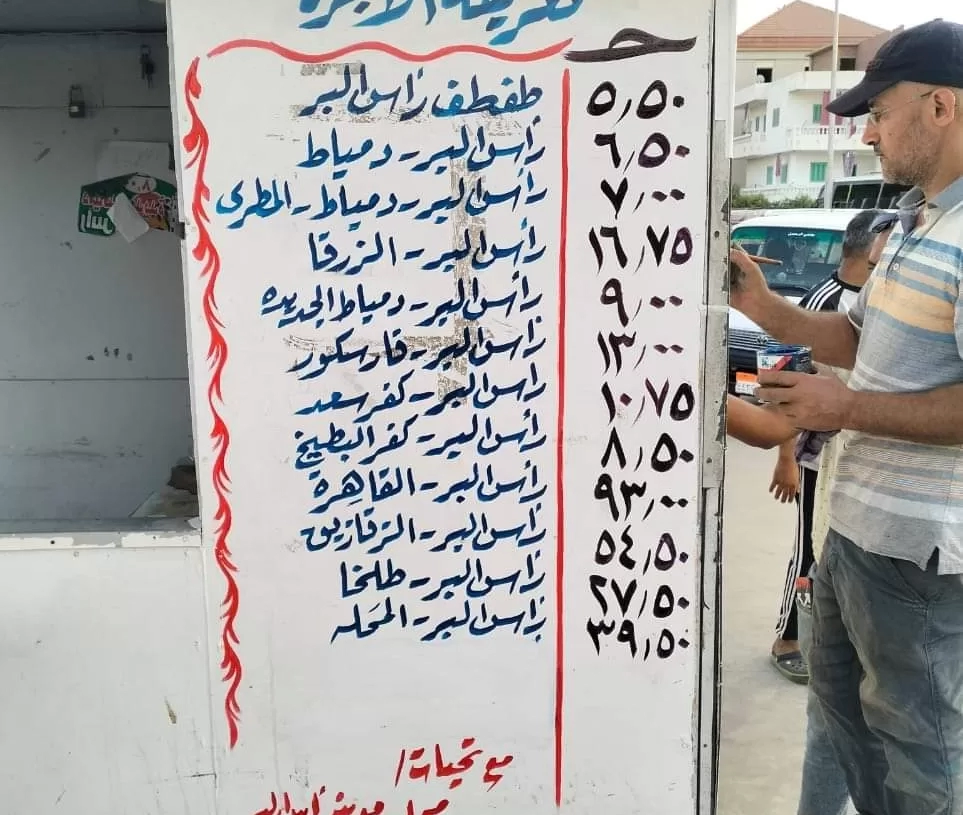 تعريفة الأجرة
جـ
طفطف رأس البر ٥,٥٠
رأس البر - دمياط ٦,٥٠
رأس البر - دمياط - المطرى ٧,٠٠
رأس البر - الزرقا ١٦,٧٥
رأس البر - دمياط الجديده ٩,٠٠
رأس البر - فارسكور ١٣,٠٠
رأس البر - كفر سعد ١٠,٧٥
رأس البر - كفر البطيخ ٨,٥٠
رأس البر - القاهرة ٩٣,٠٠
رأس البر - الزقازيق ٥٤,٥٠
رأس البر - طلخا ٢٧,٥٠
رأس البر - المحله ٣٩,٥٠
مع تحيات/
مدينة رأس البر